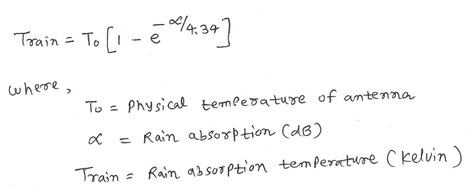 Train = To [1 - e^-α/4.34]
where,
To = Physical temperature of antenna
α = Rain absorption (dB)
Train = Rain absorption temperature (Kelvin)